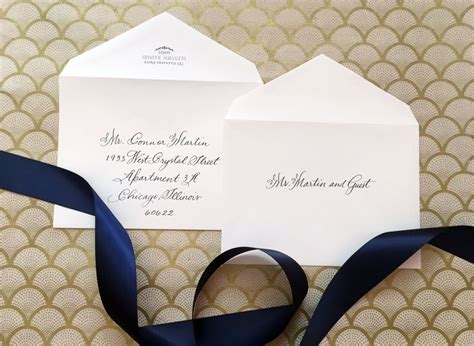 Mr. Connor Martin
1933 West Crystal Street
Apartment 3A
Chicago, Illinois
60622
Mr. Martin and Guest